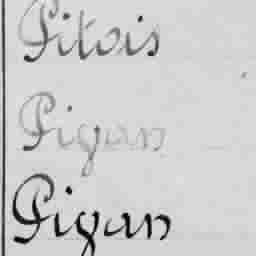 Pitois
Pigan
Pigan